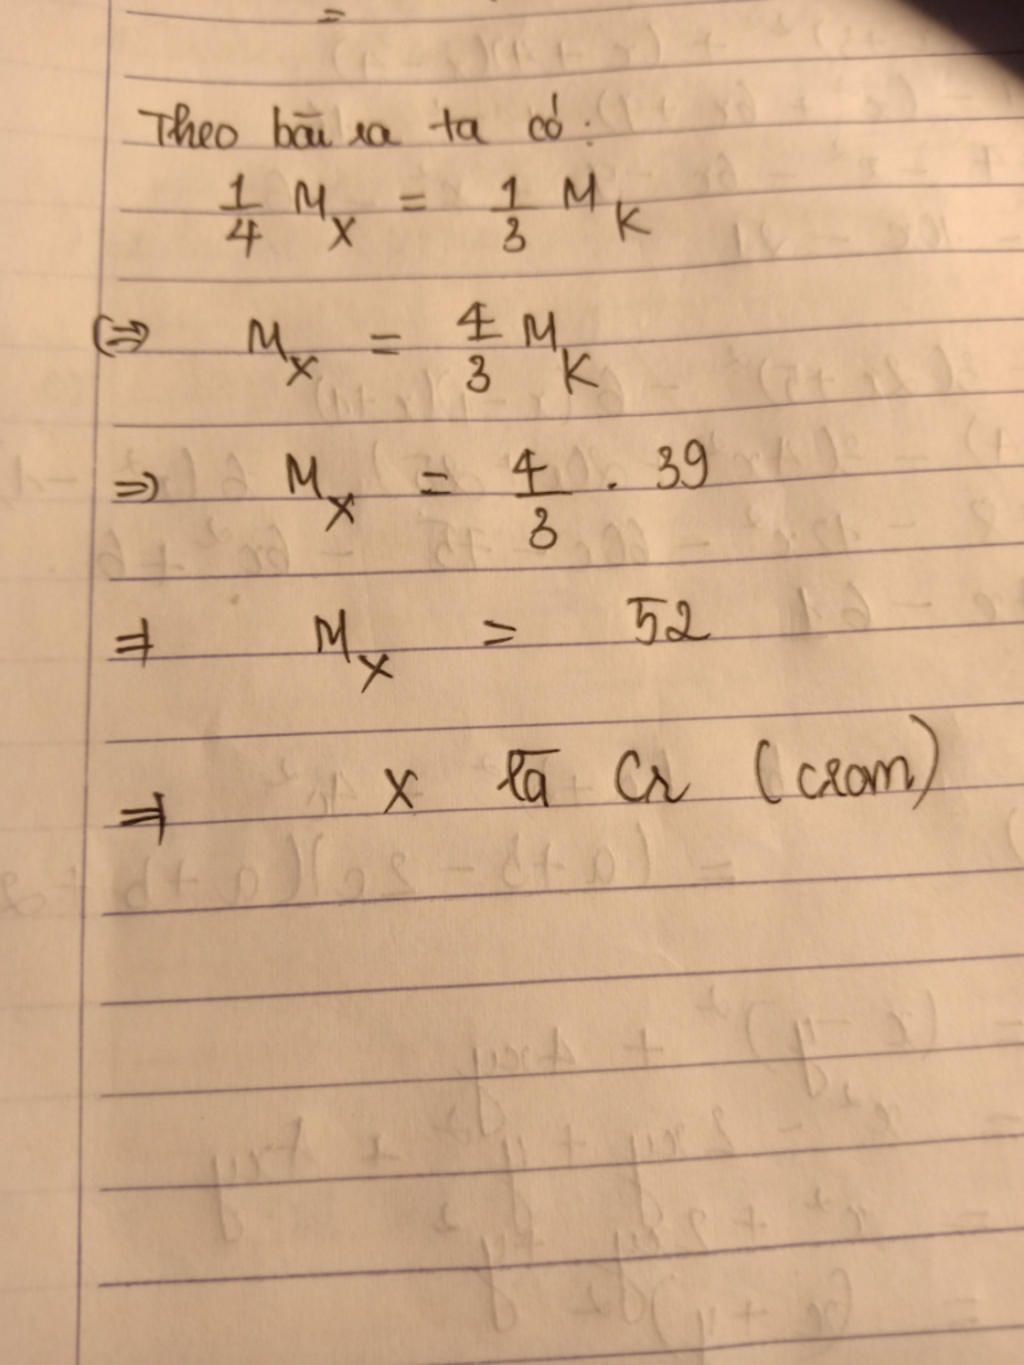 =
Theo bài ra ta có:
1/4 M_X = 1/3 M_K
(⇒ M_X = 4/3 M_K
⇒ M_X = 4/3 . 39
⇒ M_X = 52
⇒ X là Cr (crom)